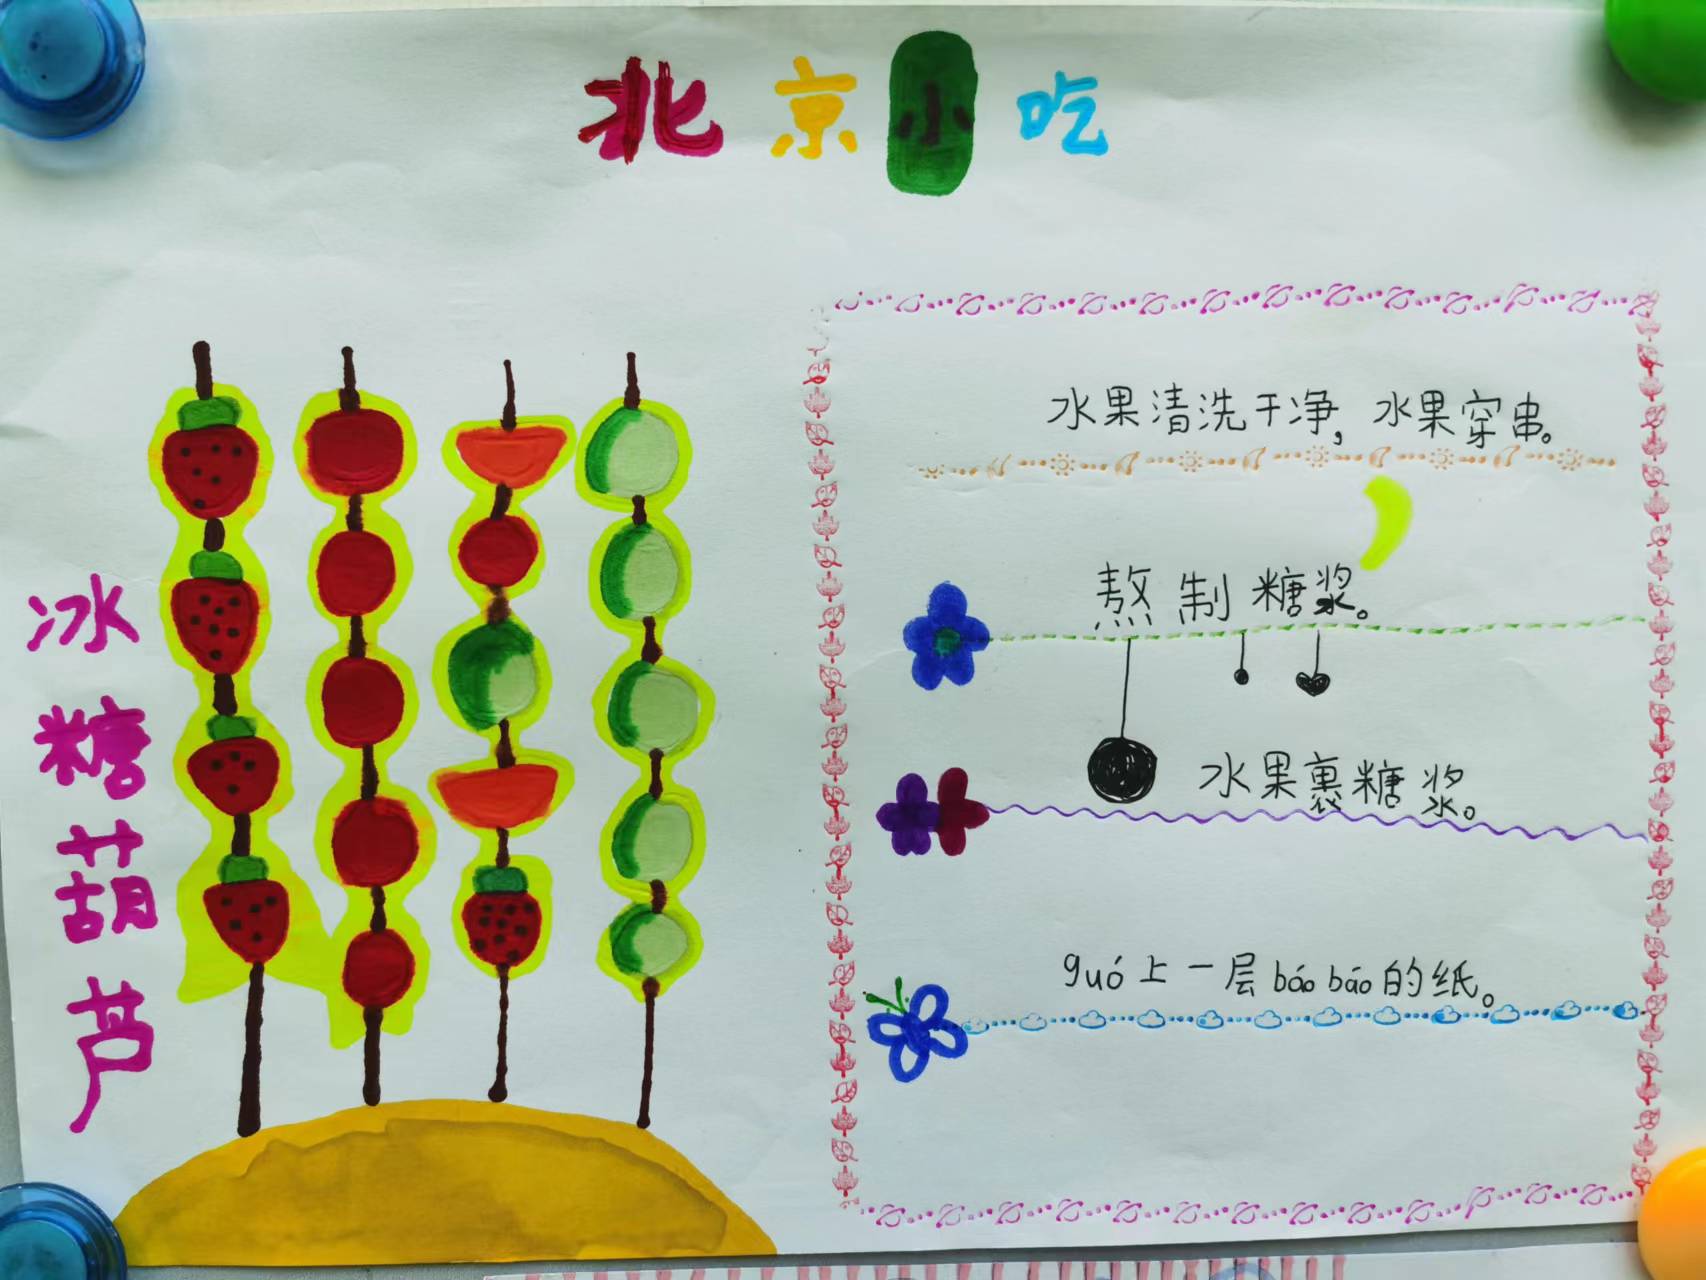 北京小吃
冰糖葫芦
水果清洗干净,水果穿串。
熬制糖浆。
水果裹糖浆。
guó上一层báo báo的纸。